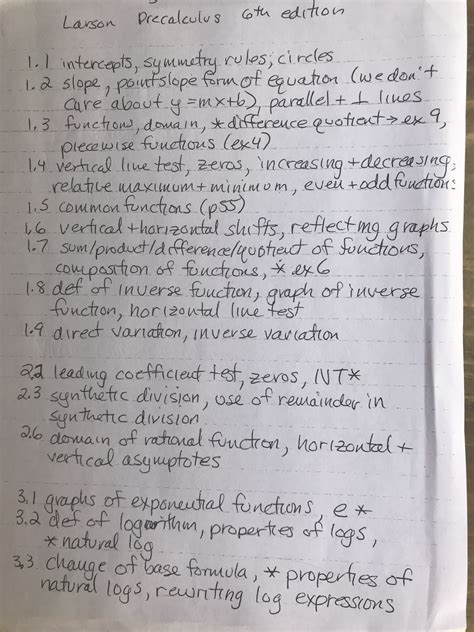 Larson Precalculus 6th edition
1.1 intercepts, symmetry rules, circles
1.2 slope, point slope form of equation (we don't
care about y=mx+b), parallel + ⊥ lines
1.3 functions, domain, * difference quotient → ex 9,
piecewise functions (ex4)
1.4 vertical line test, zeros, increasing + decreasing,
relative maximum + minimum, even + odd functions
1.5 common functions (p55)
1.6 vertical + horizontal shifts, reflecting graphs
1.7 sum/product/difference/quotient of functions,
composition of functions, * ex 6
1.8 def of inverse function, graph of inverse
function, horizontal line test
1.9 direct variation, inverse variation
2.2 leading coefficient test, zeros, IVT*
2.3 synthetic division, use of remainder in
synthetic division
2.6 domain of rational function, horizontal +
vertical asymptotes
3.1 graphs of exponential functions, e *
3.2 def of logarithm, properties of logs,
* natural log
3.3 change of base formula, * properties of
natural logs, rewriting log expressions